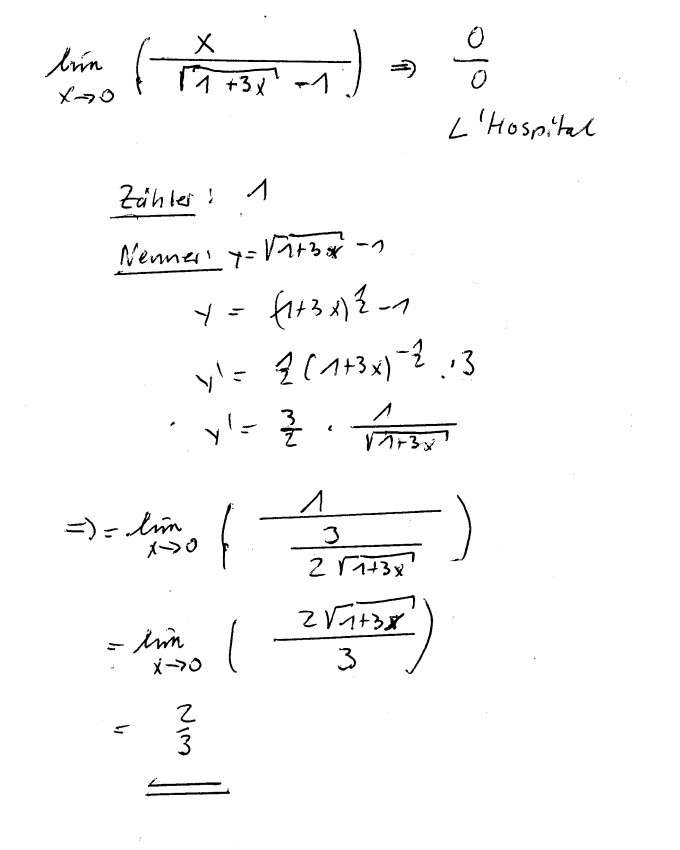 lim x→0 ( x / (√(1+3x) - 1) ) ⇒ 0/0
L'Hospital
Zähler: 1
Nenner: y = √(1+3x) - 1
y = (1+3x)^(1/2) - 1
y' = 1/2 (1+3x)^(-1/2) · 3
y' = 3/2 · 1/√(1+3x)
⇒ = lim x→0 ( 1 / (3 / (2√(1+3x))) )
= lim x→0 ( 2√(1+3x) / 3 )
= 2/3